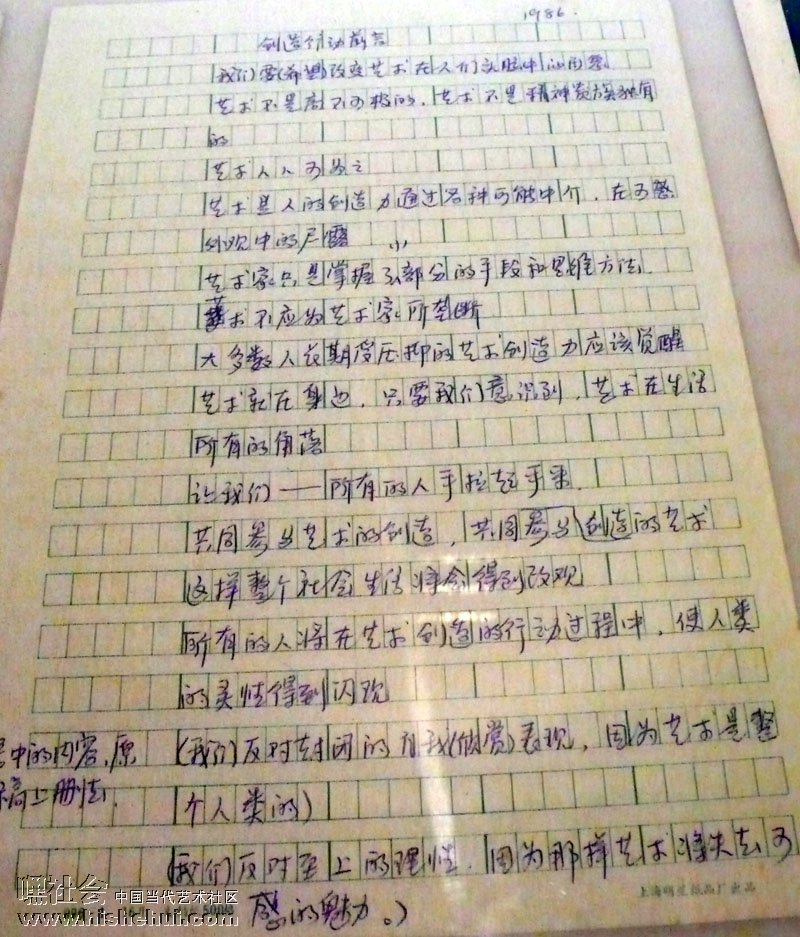 1986.
创造行动前言
我们要(希望)改变艺术在人们头脑中的图景
艺术不是高不可攀的，艺术不是精神贵族独有
的
艺术人人可为之
艺术是人的创造力通过各种可能中介，在可感
外观中的展露
艺术家只是掌握了部分的手段和思维方法.
艺术不应为艺术家所垄断
大多数人长期受压抑的艺术创造力应该觉醒
艺术就在身边，只要我们意识到，艺术在生活
所有的角落
让我们——所有的人手拉起手来.
共同参与艺术的创造，共同参与创造的艺术
这样整个社会生活将会得到改观
所有的人将在艺术创造的行动过程中，使人类
的灵性得到闪现
中的内容，原 (我们反对封闭的自我(倘赏)表现，因为艺术是整
稿上删去. 个人类的)
(我们反对至上的理性，因为那样艺术将失去可
感的魅力。)
上海明星纸品厂出品
嘿社会 中国当代艺术社区
www.hishehui.com